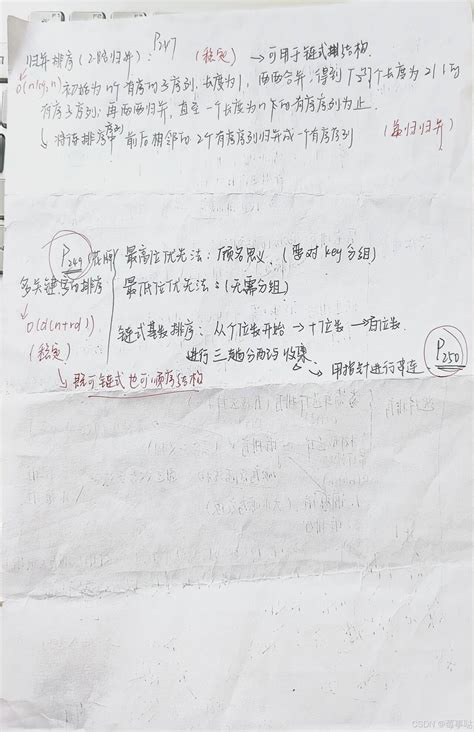 P247
归并排序（2-路归并）： （稳定） →可用于链式排结构.
O(nlog₂n) 初始为n个有序的子序列.长度为1，两两合并，得到「n/2⌉个长度为2或1的
有序子序列；再两两归并，直至一个长度为n的有序序列为止.
↳ 将待排序序列 前后相邻的2个有序序列归并成一个有序序列 （递归归并）
P249 最高位优先法：顾名思义.（要对key分组）
多关键字的排序 最低位优先法：（无需分组）
O(d(n+rd))
（稳定） 链式基数排序：从个位数开始→十位数→百位数.
进行三趟分配与收集. P250
↳用指针进行串连
↳既可链式也可顺序结构
CSDN @莓事哒